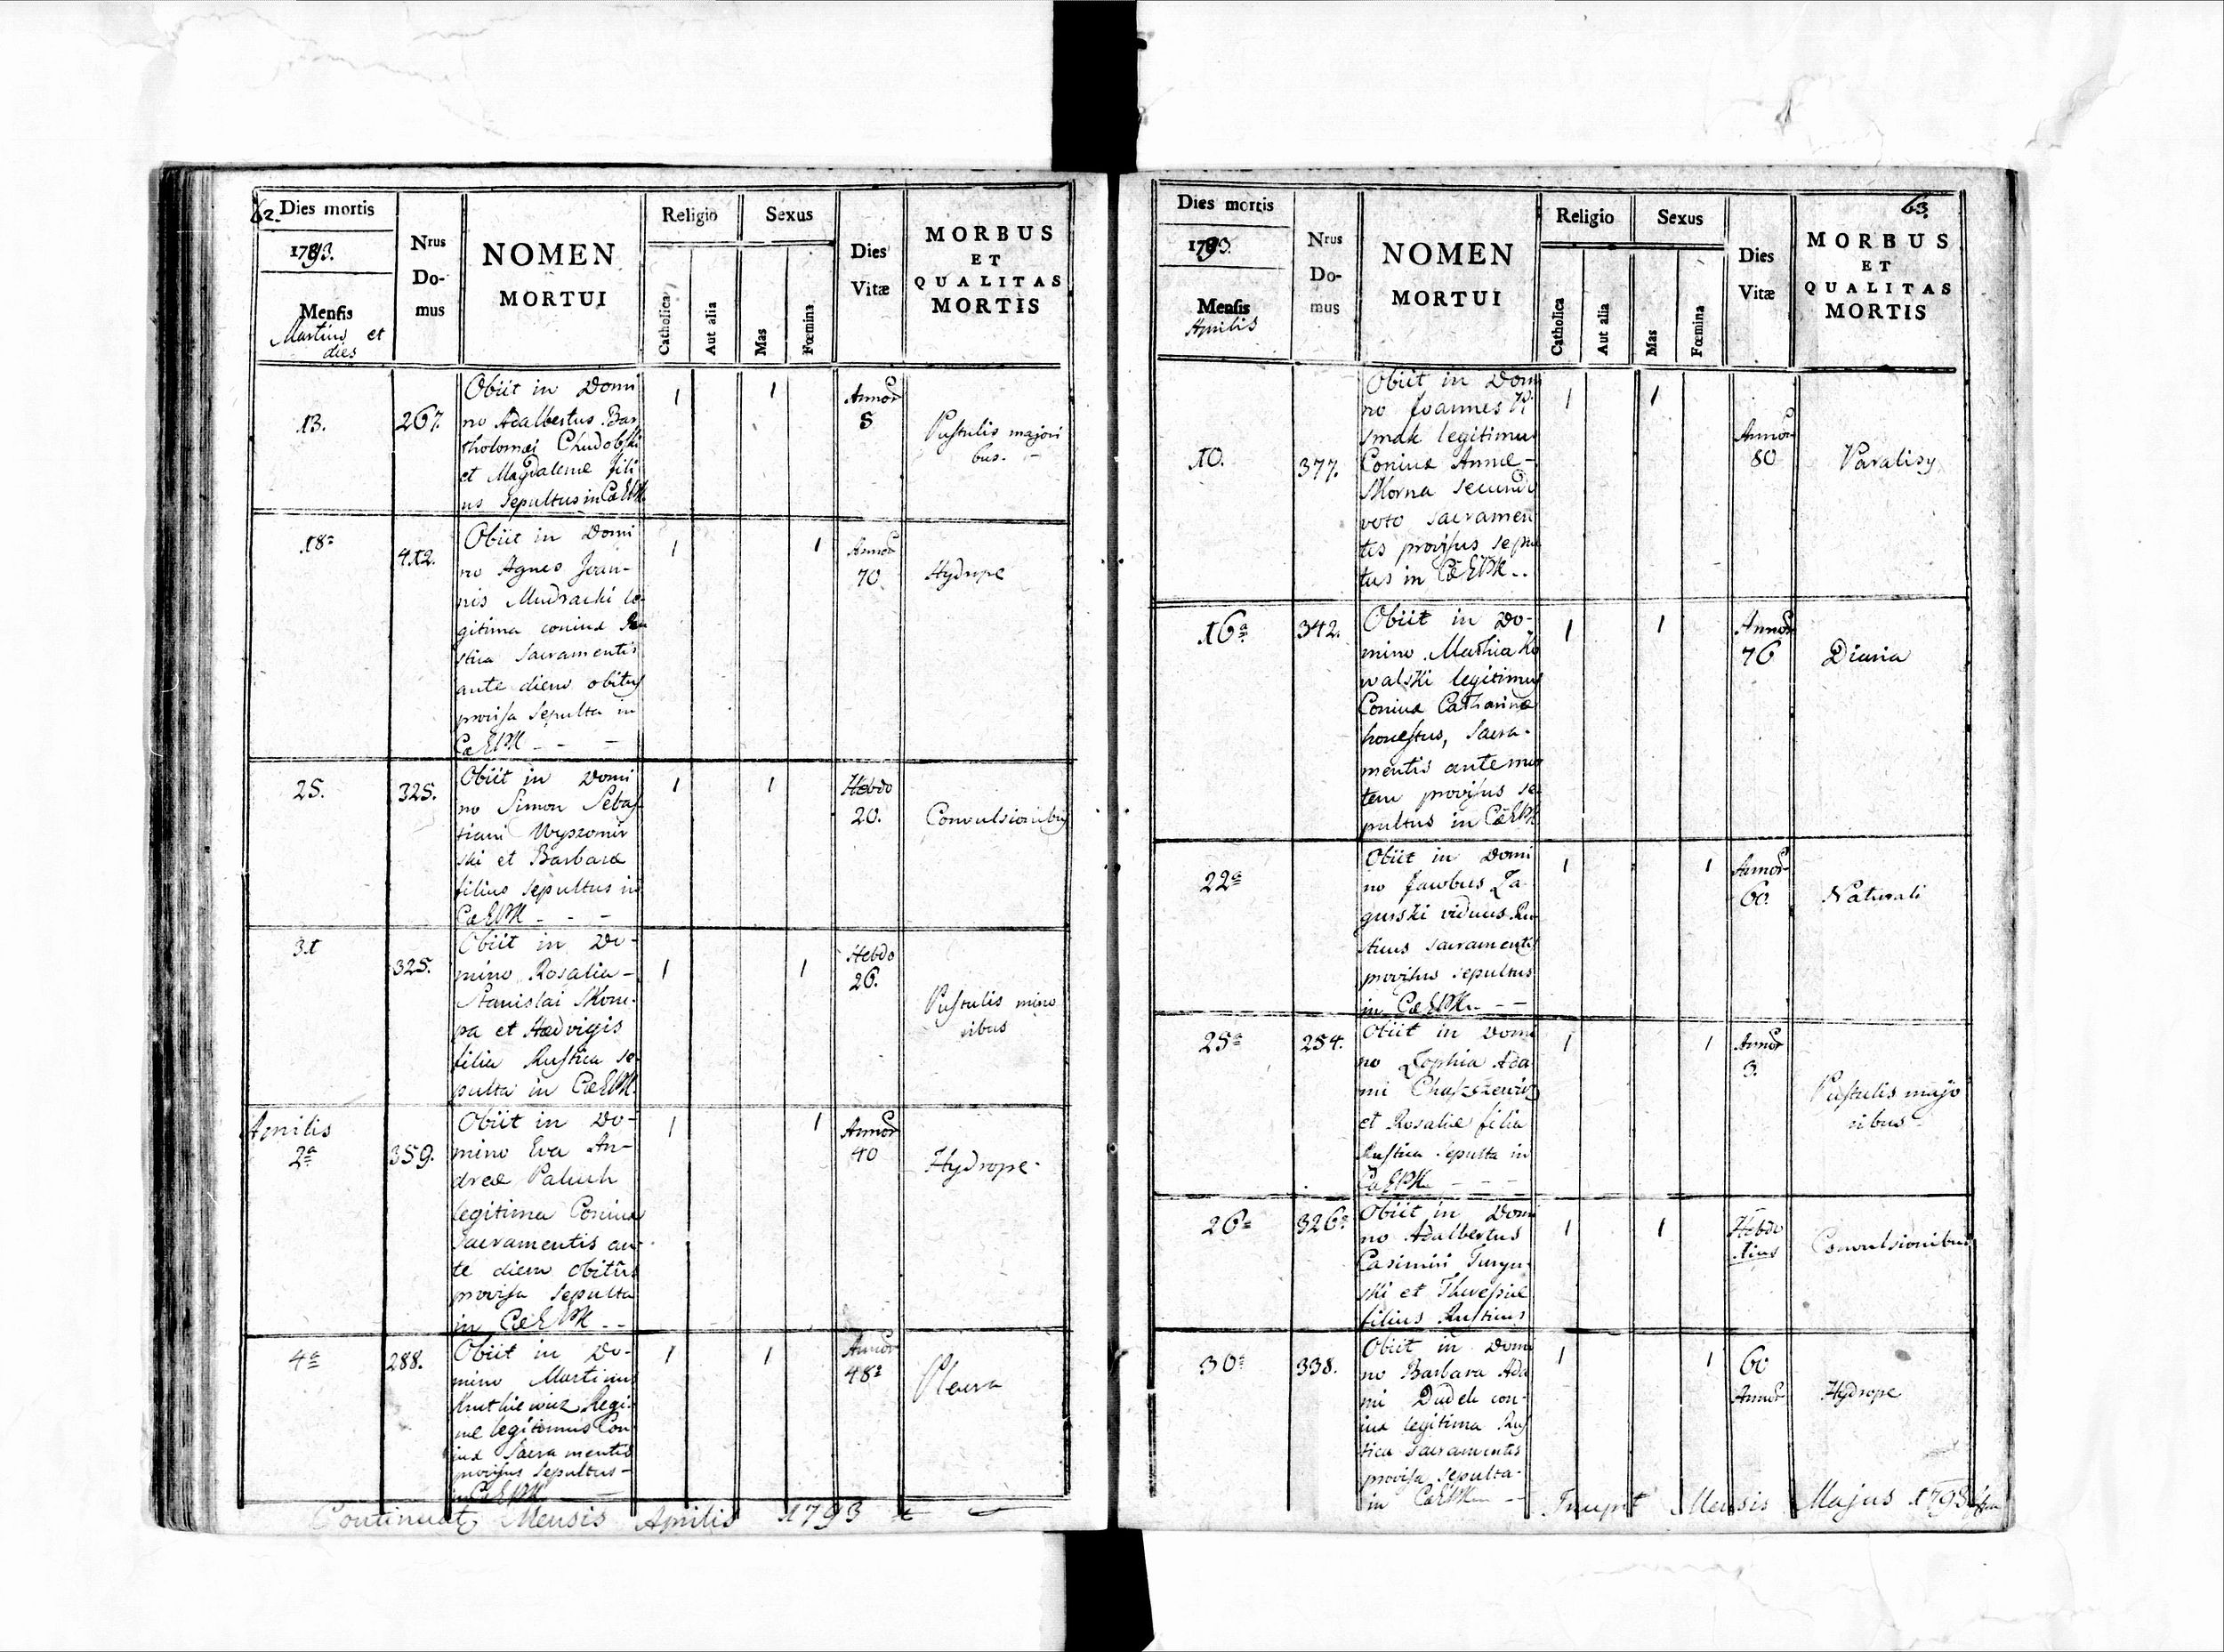 62.
Dies mortis
1793.
Mensis
Martius et
dies
Nrus
Do-
mus
NOMEN
MORTUI
Religio
Catholica
Aut alia
Sexus
Mas
Fœmina
Dies
Vitæ
MORBUS
ET
QUALITAS
MORTIS
13.
267.
Obiit in Domi
no Adalbertus Bar
tholomæi Chudobski
et Magdalenæ fili
us sepultus in CæEPK
1
1
Annor
8
Pustulis majori
bus. -
18a
412.
Obiit in Domi
no Agnes Joan-
nis Mudracki le-
gitima coniux Ru
stica Sacramentis
ante diem obitus
provisa sepulta in
CæEPK - - -
1
1
Annor
70
Hydrope
25.
325.
Obiit in Domi
no Simon Sebas
tiani Wyszomir
ski et Barbaræ
filius sepultus in
CæEPK - - -
1
1
Hebdo
20.
Convulsionibus
31
325.
Obiit in Do-
mino Rosalia -
Stanislai Skom-
pa et Hædvigis
filia Rustica se-
pulta in CæEPK.
1
1
Hebdo
26.
Pustulis mino
ribus
Aprilis
2a
359.
Obiit in Do-
mino Eva An-
dreæ Paluch
legitima Coniux
Sacramentis an-
te diem obitus
provisa sepulta
in CæEPK - -
1
1
Annor
40
Hydrope
4a
288.
Obiit in Do-
mino Martinus
Regi-
næ legitimus Con
iux Sacramentis
provisus sepultus -
in CæEPK
1
1
Annor
48a
Pleura
Continuat Mensis Aprilis 1793
63.
Dies mortis
1793.
Mensis
Aprilis
Nrus
Do-
mus
NOMEN
MORTUI
Religio
Catholica
Aut alia
Sexus
Mas
Fœmina
Dies
Vitæ
MORBUS
ET
QUALITAS
MORTIS
10.
377.
Obiit in Domi
no Joannes
smak legitimus
Coniux Annæ -
Skorna secundi
voto Sacramen
tis provisus sepul
tus in CæEPK - -
1
1
Annor
80
Paralisy
16a
342.
Obiit in Do-
mino Mathia Ko
walski legitimus
Coniux Catharinæ
honestus, Sacra-
mentis ante mor
tem provisus se
pultus in CæEPK
1
1
Annor
76
Diaria
22a
Obiit in Domi
no Jacobus Za
gurski viduus Ru
sticus Sacramentis
provisus sepultus
in CæEPK - -
1
1
Annor
60.
Naturali
25a
254.
Obiit in Domi
no Zophia Ada
mi
et Rosaliæ filia
Rustica sepulta in
CæEPK - - -
1
1
Annor
3.
Pustulis majo
ribus
26a
326a
Obiit in Domi
no Adalbertus
Casimiri Turyn-
ski et Theresiæ
filius Rusticus
1
1
Hebdo
Convulsionibus
30a
338.
Obiit in Domi
no Barbara Ada
mi Dudek con-
iux legitima Rus
tica Sacramentis
provisa sepulta
in CæEPK - -
1
1
60
Annor
Hydrope
Incipit Mensis Majus 1793